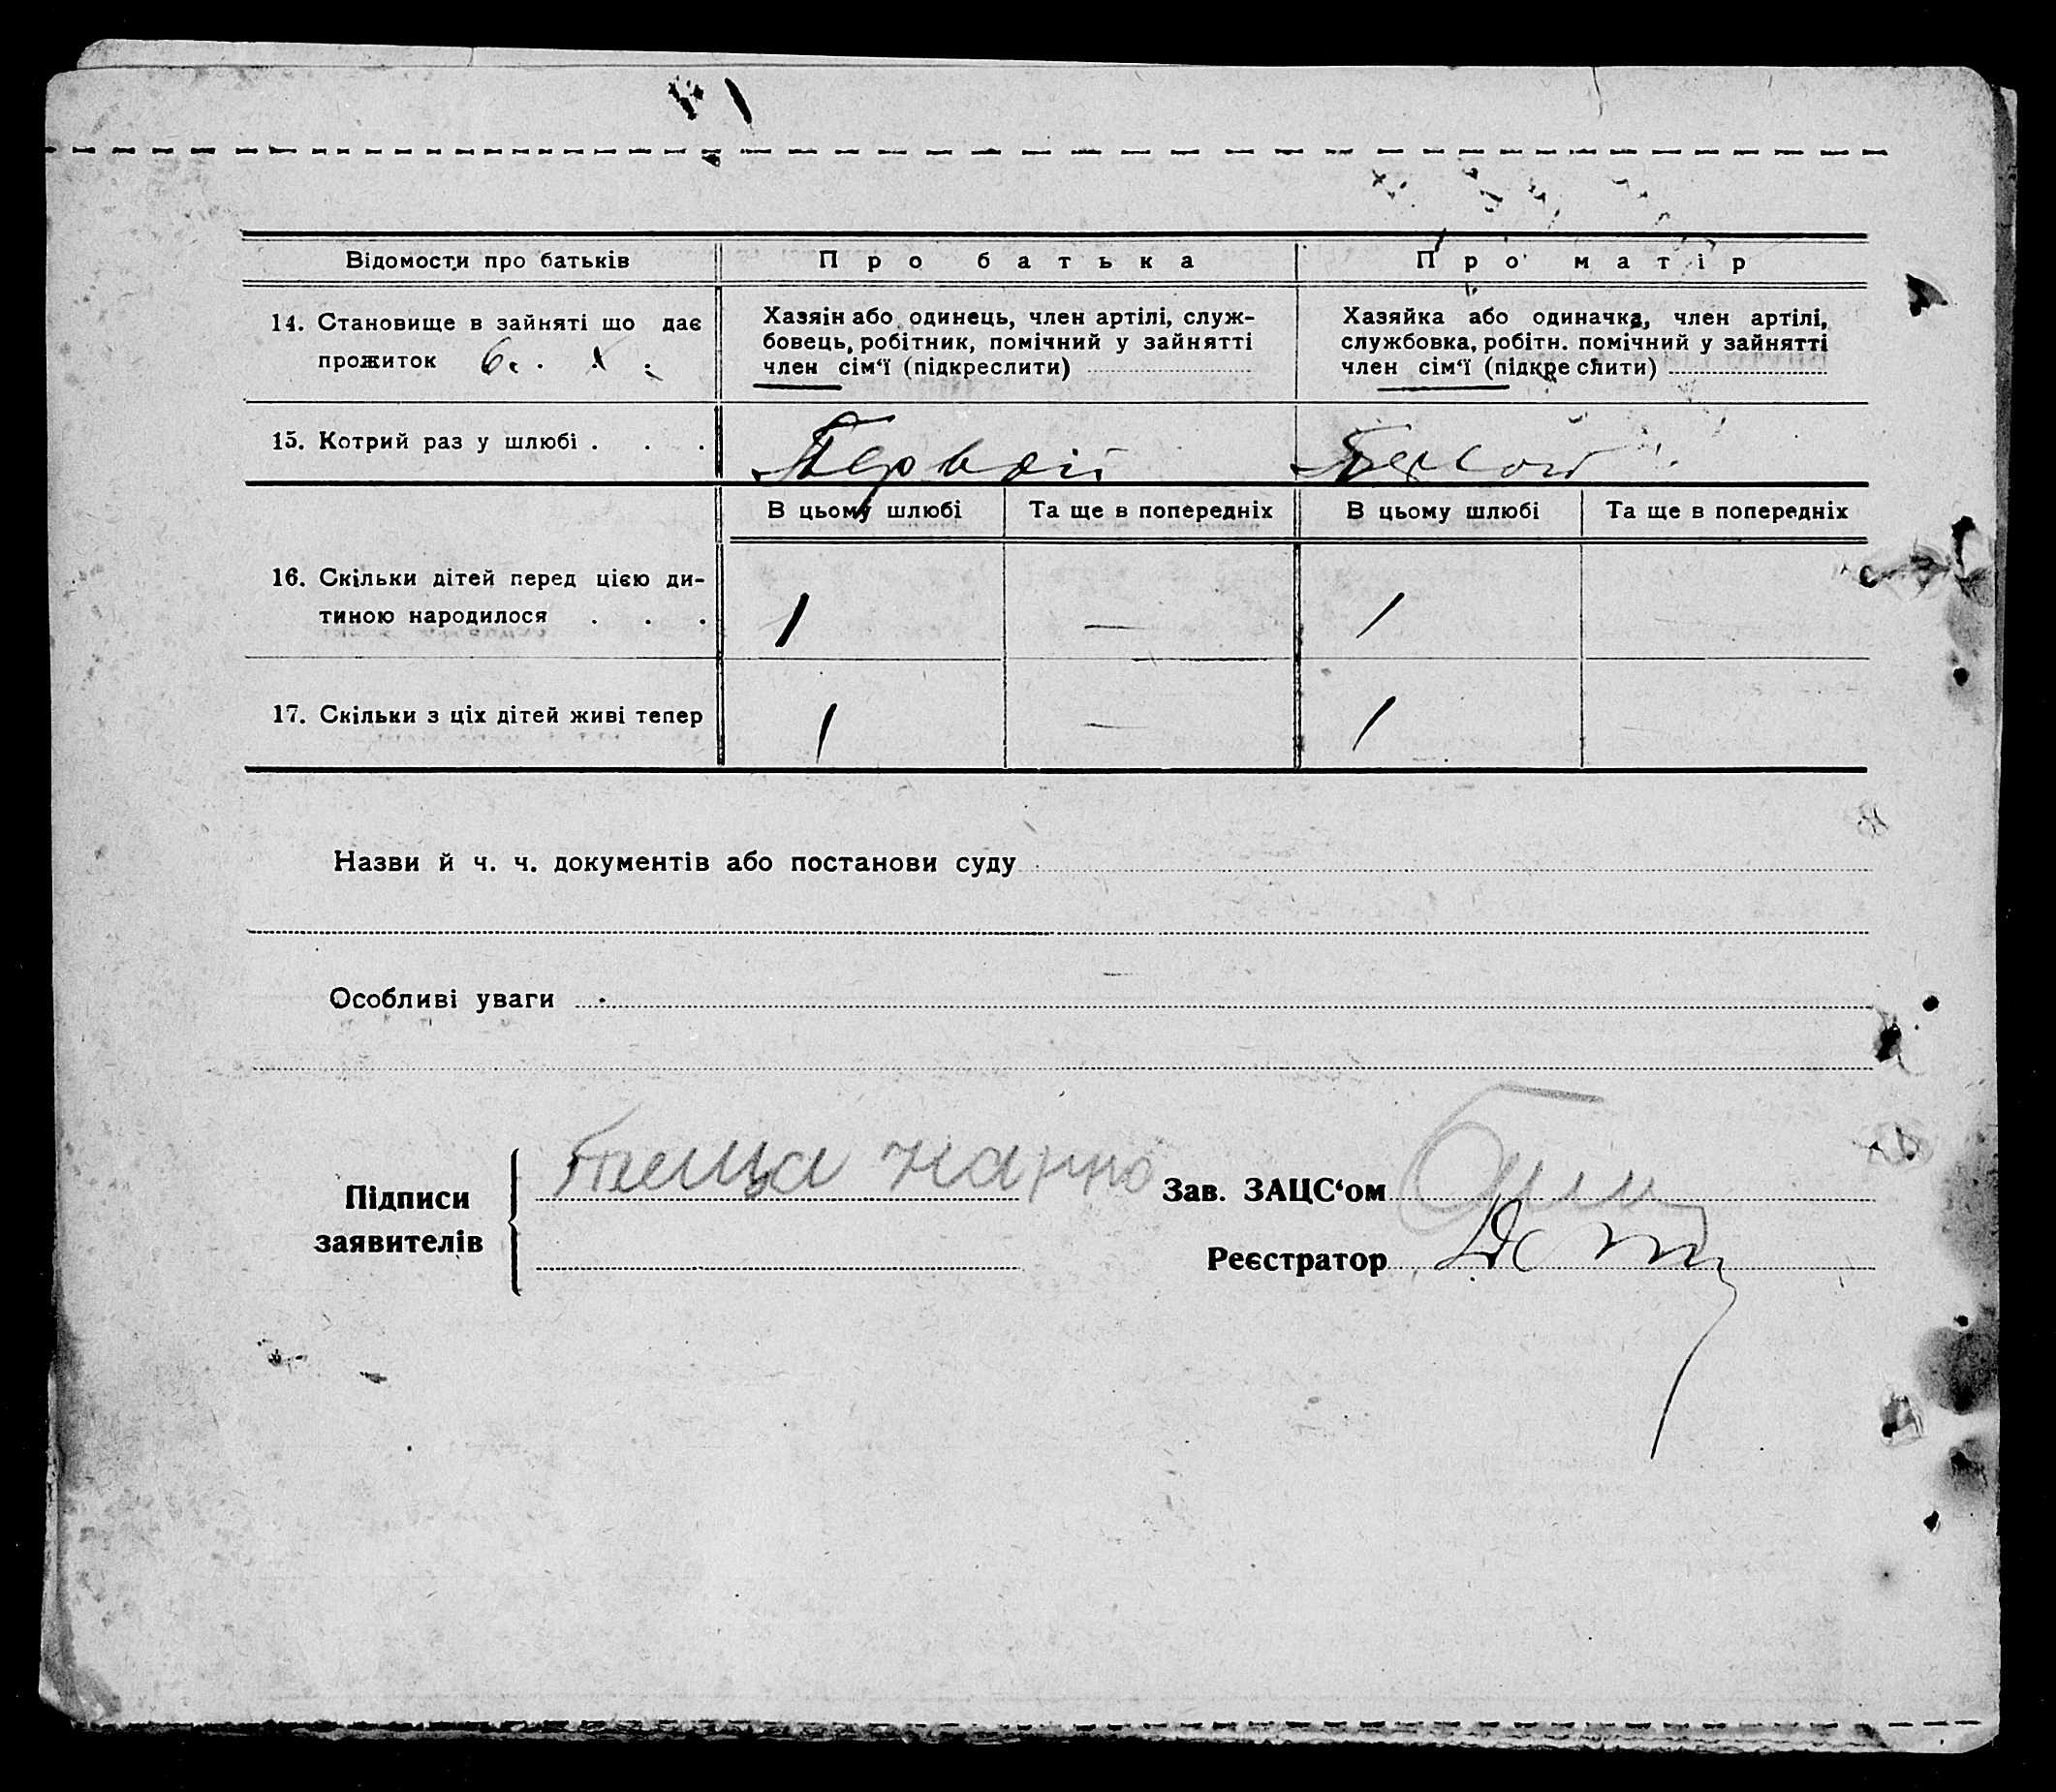 Відомости про батьків
Про батька
Про матір
14. Становище в зайняті що дає
прожиток
Хазяін або одинець, член артілі, служ-
бовець, робітник, помічний у зайнятті
член сім‘ї (підкреслити)
Хазяйка або одиначка, член артілі,
службовка, робітн. помічний у зайнятті
член сім‘ї (підкреслити)
15. Котрий раз у шлюбі . . .
Первой
Первой
В цьому шлюбі
Та ще в попередніх
В цьому шлюбі
Та ще в попередніх
16. Скільки дітей перед цією ди-
тиною народилося . . .
1
—
1
17. Скільки з ціх дітей живі тепер
1
—
1
Назви й ч. ч. документів або постанови суду
Особливі уваги
Підписи
заявителів
Зав. ЗАЦС‘ом
Реєстратор